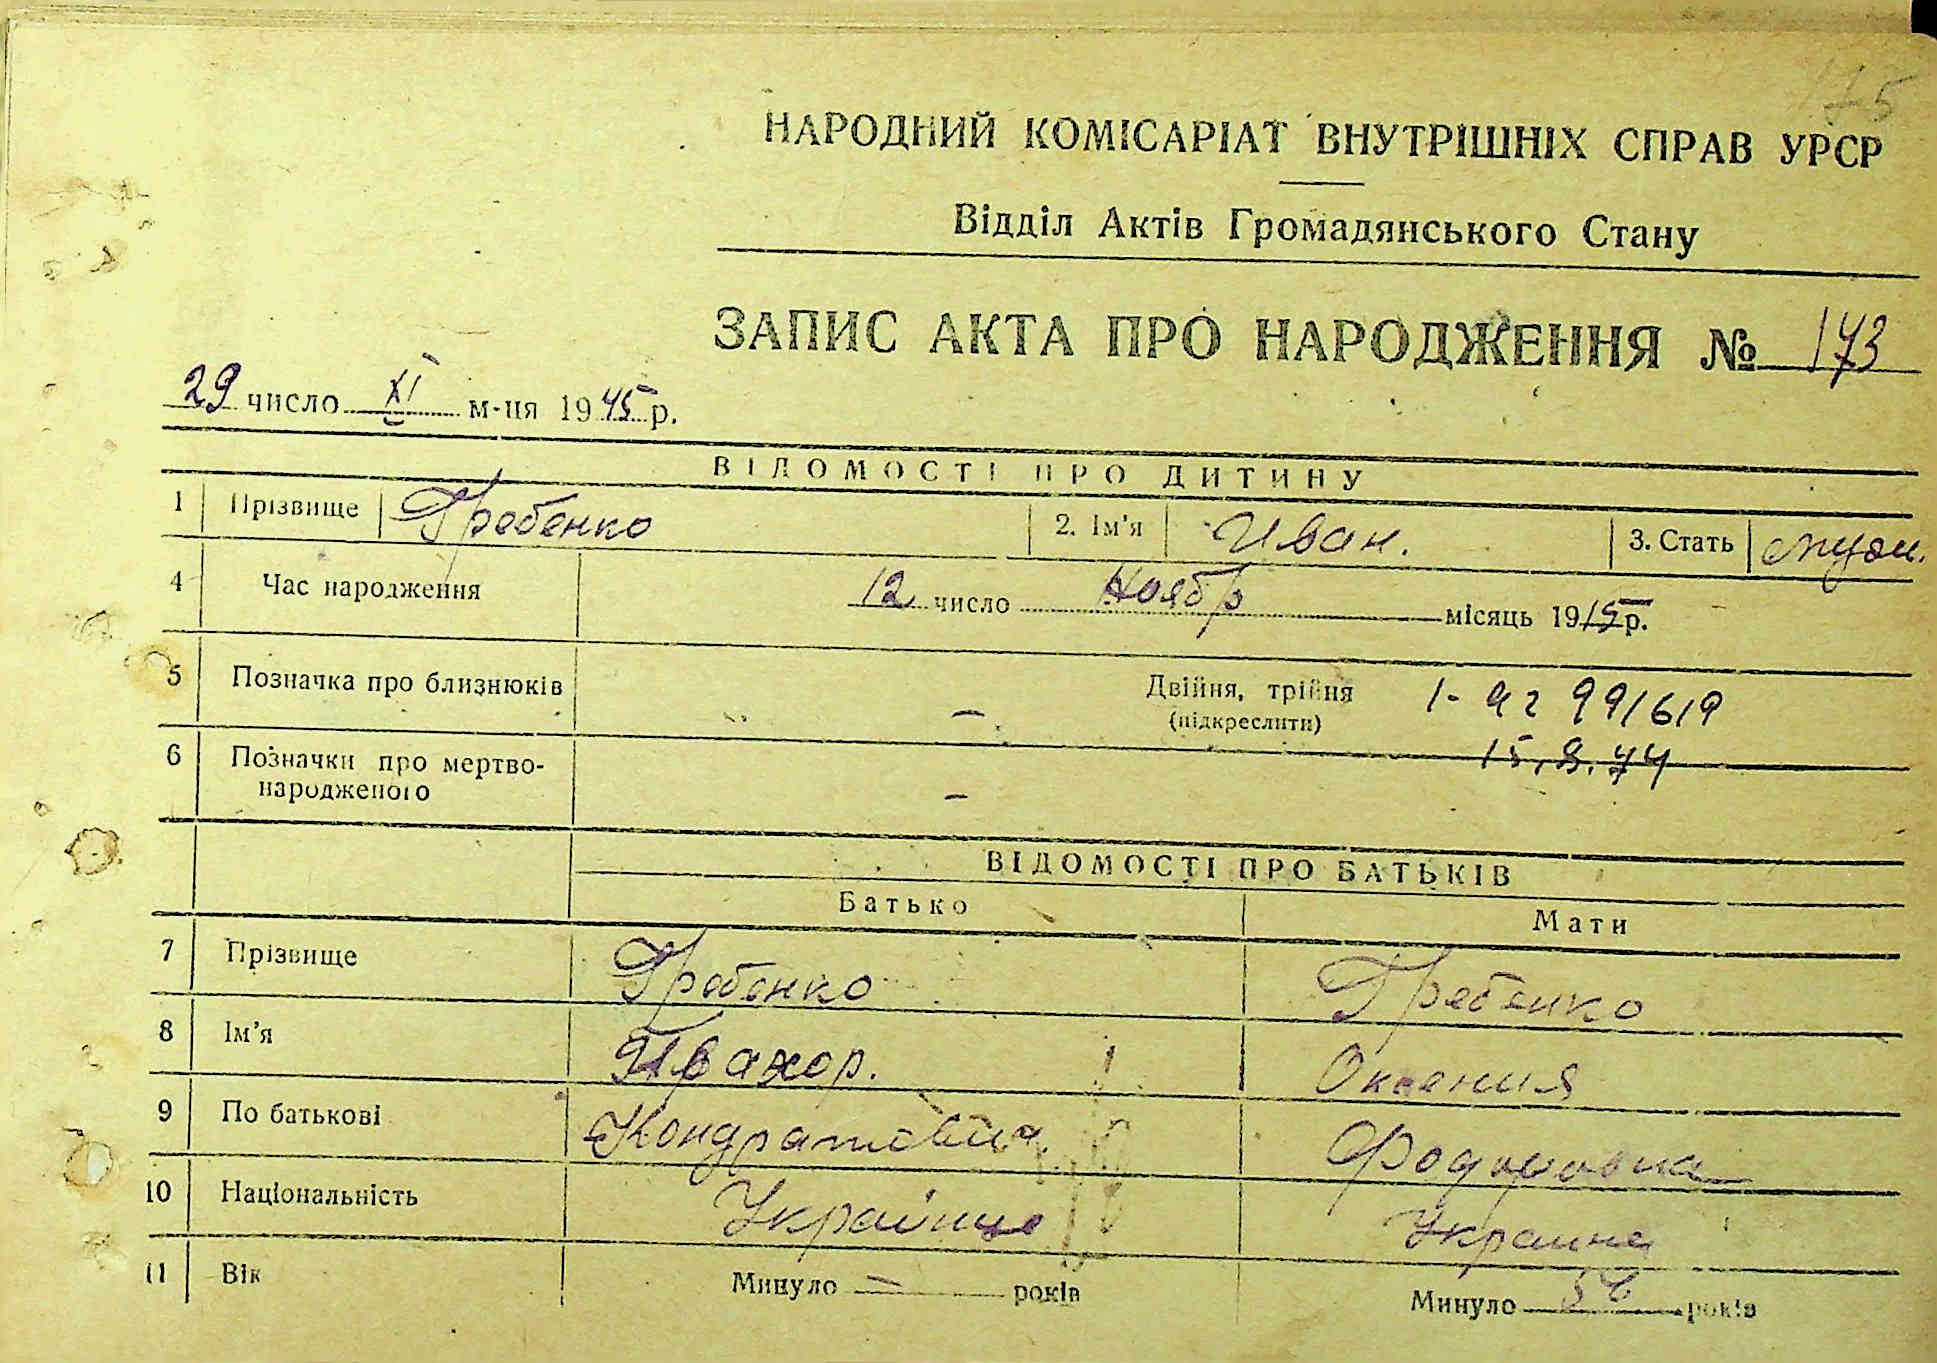 175
НАРОДНИЙ КОМІСАРІАТ ВНУТРІШНІХ СПРАВ УРСР
Відділ Актів Громадянського Стану
ЗАПИС АКТА ПРО НАРОДЖЕННЯ № 173
29 число XI м-ця 1945 р.
ВІДОМОСТІ ПРО ДИТИНУ
1 Прізвище Гребенко 2. Ім'я Иван. 3. Стать муж.
4 Час народження 12 число Ноябр місяць 1915 р.
5 Позначка про близнюків — Двійня, трійня
(підкреслити)
991619
15.8.74
6 Позначки про мертво-
народженого —
ВІДОМОСТІ ПРО БАТЬКІВ
Батько Мати
7 Прізвище Гребенко Гребенко
8 Ім'я Оксения
9 По батькові Кондратович Федоровна
10 Національність
11 Вік Минуло — років Минуло років